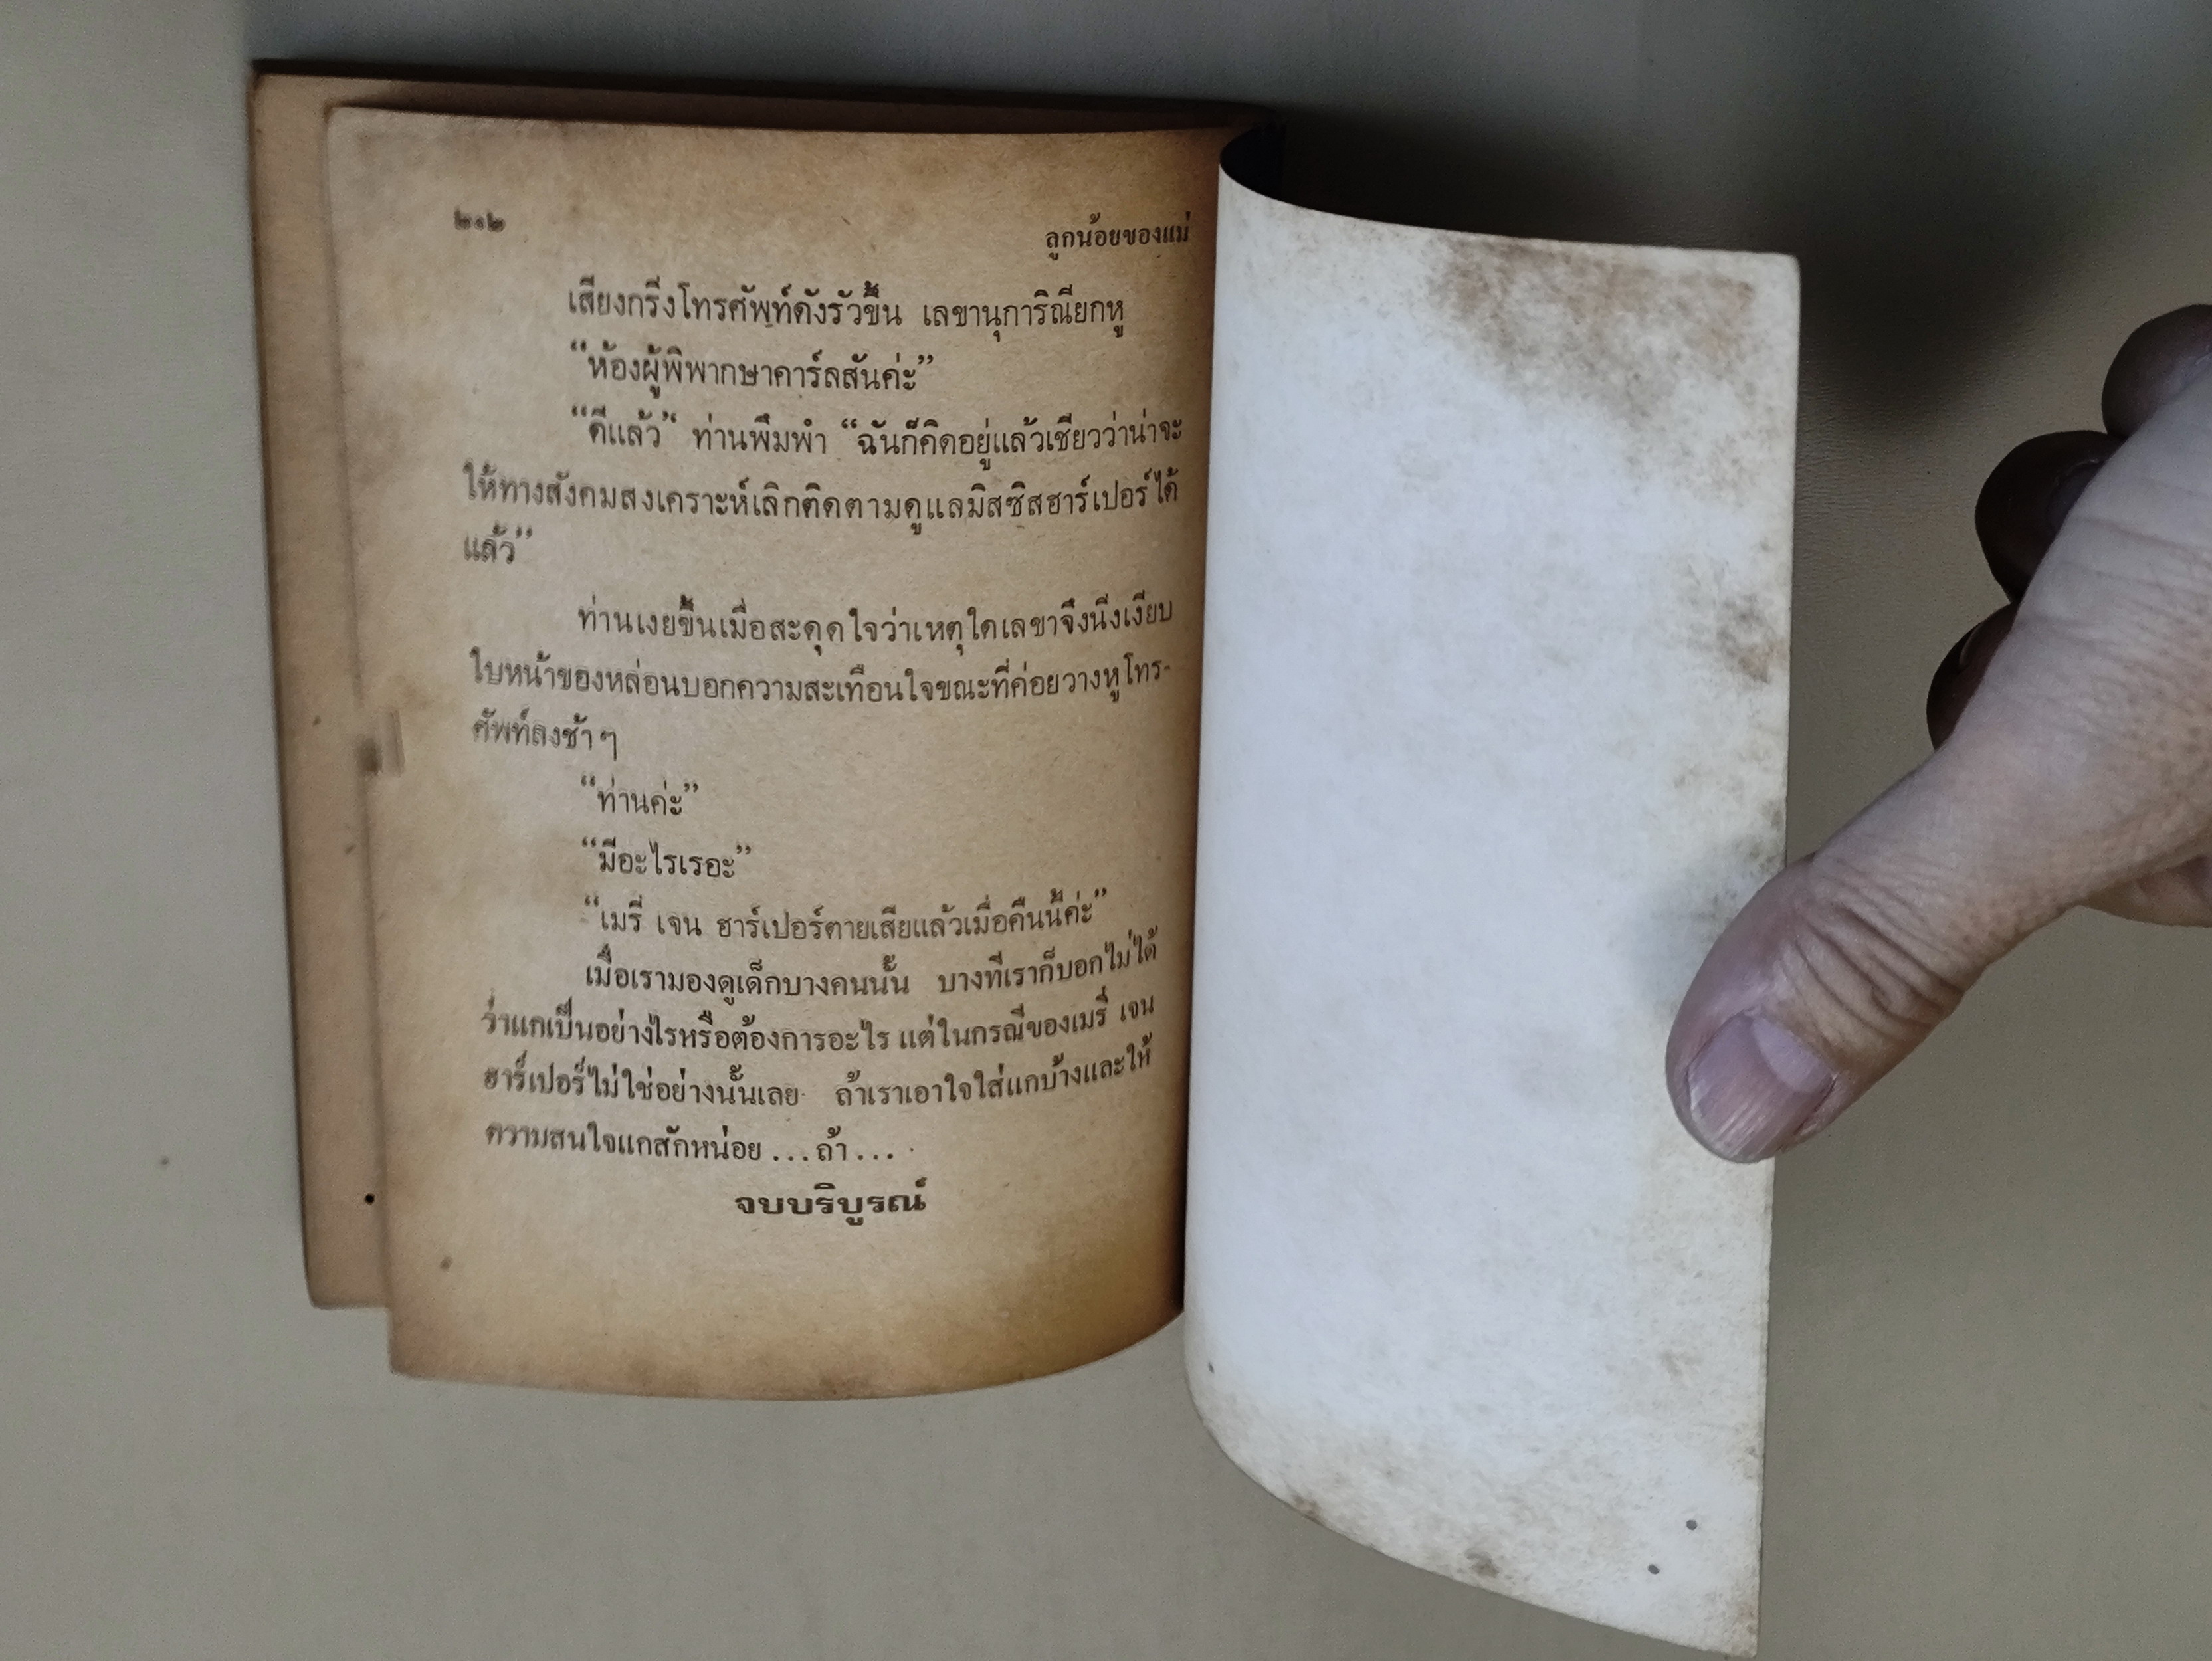 ๒๐๒
ลูกน้อยของแม่
เสียงกริ่งโทรศัพท์ดังรัวขึ้น เลขานุการิณียกหู
“ห้องผู้พิพากษาคาร์ลสันค่ะ”
“ดีแล้ว” ท่านพึมพำ “ฉันก็คิดอยู่แล้วเชียวว่าน่าจะ
ให้ทางสังคมสงเคราะห์เลิกติดตามดูแลมิสซิสฮาร์เปอร์ได้
แล้ว”
ท่านเงยขึ้นเมื่อสะดุดใจว่าเหตุใดเลขาจึงนิ่งเงียบ
ใบหน้าของหล่อนบอกความสะเทือนใจขณะที่ค่อยวางหูโทร-
ศัพท์ลงช้าๆ
“ท่านค่ะ”
“มีอะไรเรอะ”
“เมรี่ เจน ฮาร์เปอร์ตายเสียแล้วเมื่อคืนนี้ค่ะ”
เมื่อเรามองดูเด็กบางคนนั้น บางทีเราก็บอกไม่ได้
ว่าแกเป็นอย่างไรหรือต้องการอะไร แต่ในกรณีของเมรี่ เจน
ฮาร์เปอร์ไม่ใช่อย่างนั้นเลย ถ้าเราเอาใจใส่แกบ้างและให้
ความสนใจแกสักหน่อย ...ถ้า...
จบบริบูรณ์